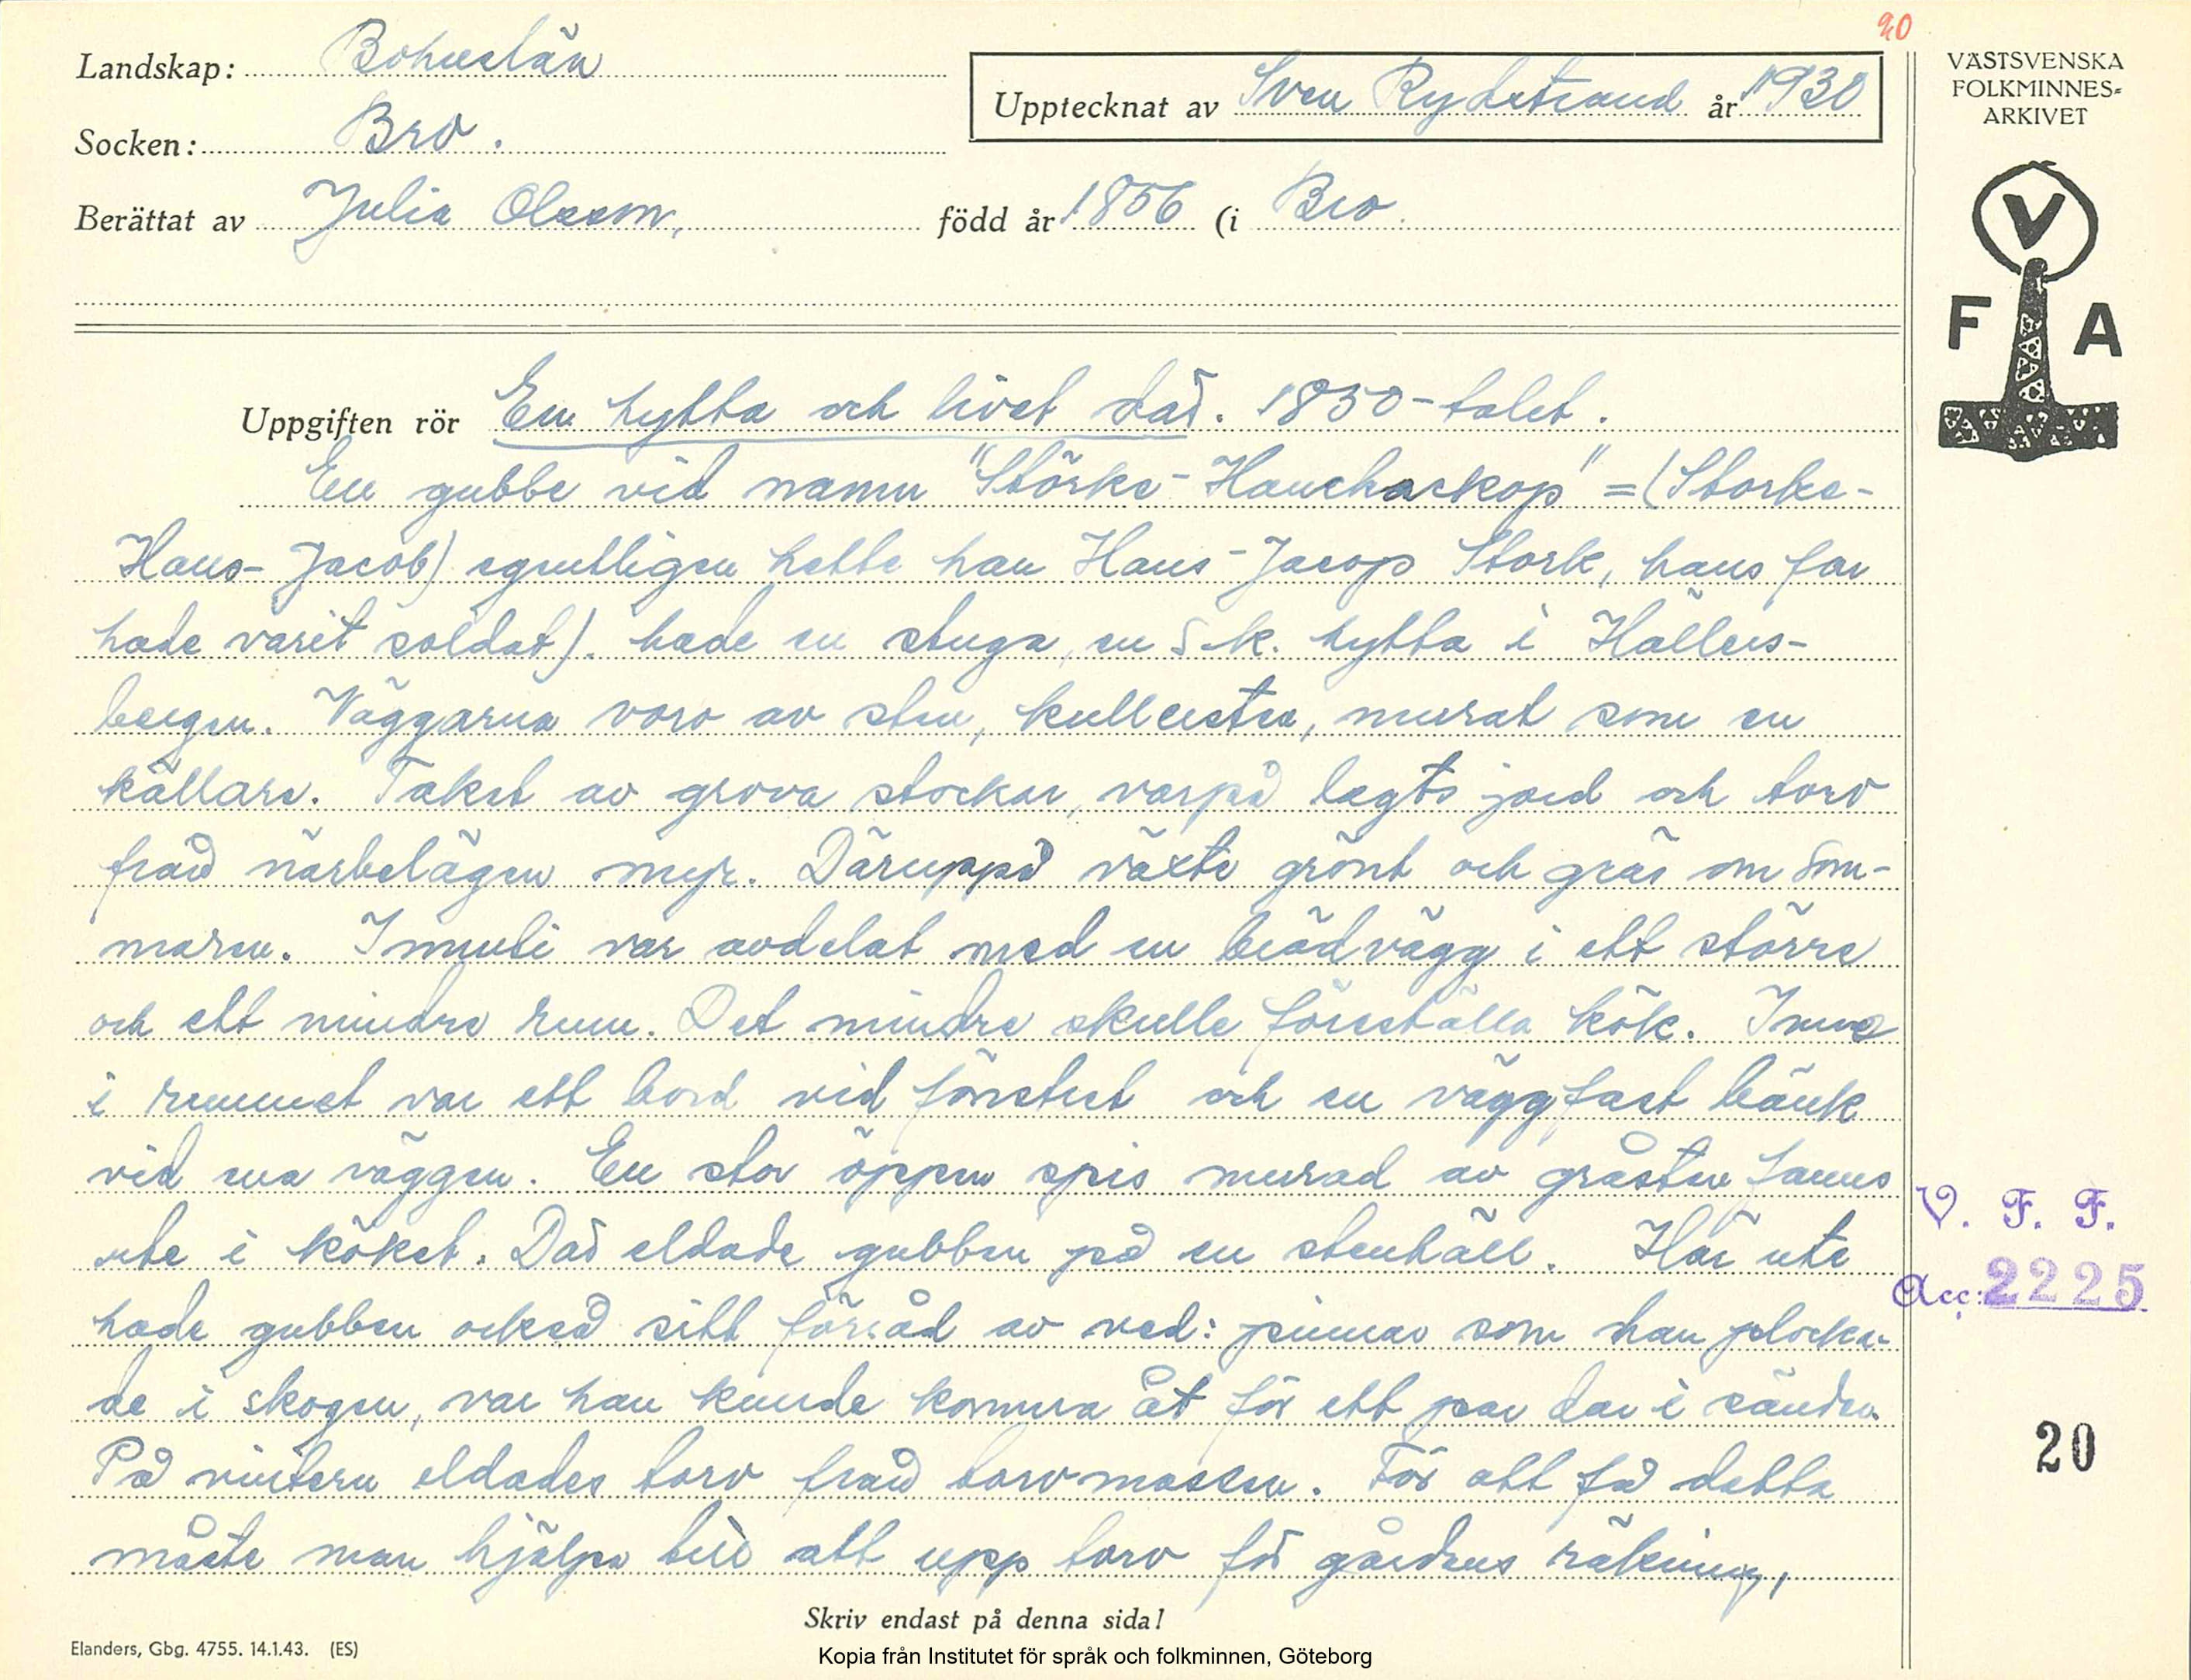 20
Landskap: Bohuslän
Socken: Bro.
Upptecknat av Sven Rydstrand år 1930
Berättat av Julia Olsson, född år 1856 (i Bro.
VÄSTSVENSKA
FOLKMINNES-
ARKIVET
V
F A
Uppgiften rör En hytta och livet där. 1850-talet.
En gubbe vid namn "Störke-Hanchackop" = (Storke-
Hans-Jacob) egentligen hette han Hans-Jacop Stork, hans far
hade varit soldat). hade en stuga, en s.k. hytta i Hällers-
bergen. Väggarna voro av sten, kullersten, murat som en
källare. Taket av grova stockar, varpå lagts jord och torv
från närbelägen myr. Däruppå växte grönt och gräs om som-
maren. Innuti var avdelat med en brädvägg i ett större
och ett mindre rum. Det mindre skulle föreställa kök. Inne
i rummet var ett bord vid fönstret och en väggfast bänk
vid ena väggen. En stor öppen spis murad av gråsten fanns
ute i köket. Där eldade gubben på en stenhäll. Här ute
hade gubben också sitt förråd av ved: pinnar som han plocka-
de i skogen, var han kunde komma åt för ett par dar i sänder.
På vintern eldades torv från torvmossen. För att få detta
måste man hjälpa till att upp torv för gårdens räkning,
V. F. F.
Acc: 2225
20
Skriv endast på denna sida!
Elanders, Gbg. 4755. 14.1.43. (ES)
Kopia från Institutet för språk och folkminnen, Göteborg